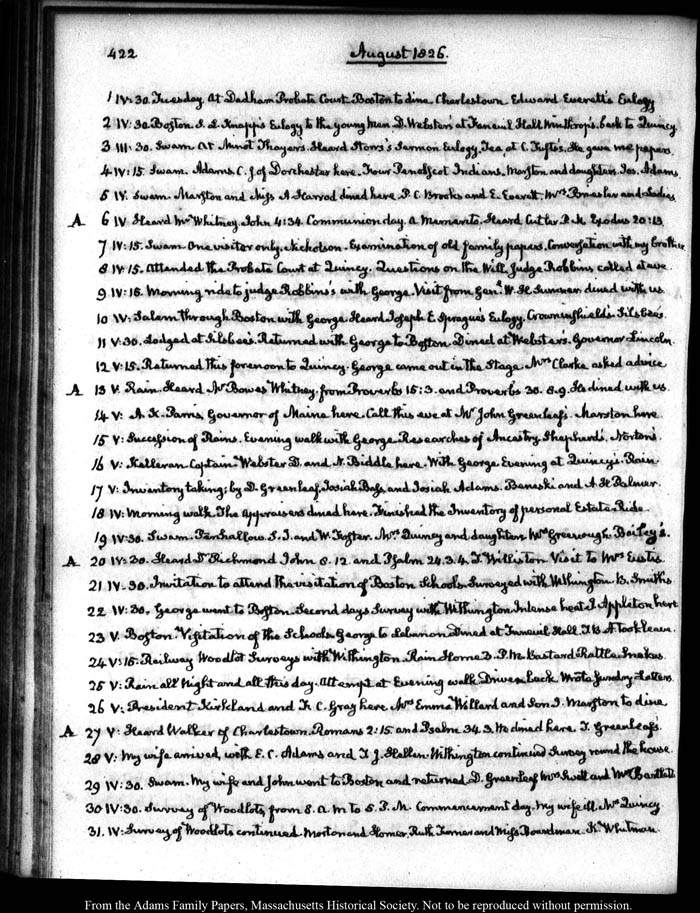 422
August 1826.
1 IV: 30. Tuesday. At Dedham Probate Court. Boston to dine. Charlestown Edward Everett's Eulogy
2 IV: 30. Boston. S. L. Knapp's Eulogy to the young Men. D. Webster's at Faneuil Hall. Winthrop's. back to Quincy
3 III: 30. Swam. At Minot Thayer's. Heard Storrs's Sermon Eulogy. Tea at C. Tufts's. He gave me papers.
4 IV: 15. Swam. Adams, C. J. of Dorchester here. Four Penobscot Indians. Marston and daughters. Jos. Adams.
5 IV. Swam. Marston and Miss A Harrod dined here. P. C. Brooks and E. Everett. Mrs and Ladies
A 6 IV Heard Mr Whitney. John 4:34. Communion day. A Memento. Heard Cutler P. M. Exodus 20:13
7 IV: 15. Swam. One visitor only, Nicholson. Examination of old family papers. Conversation with my brother
8 IV: 15. Attended the Probate Court at Quincy. Questions on the Will. Judge Robbins called at eve.
9 IV: 15. Morning ride to judge Robbins's with George. Visit from Genl. W. H. Sumner dined with us
10 IV: Salem through Boston with George. Heard Joseph E. Sprague's Eulogy. Crowninshield's Silsbee's.
11 V: 30. Lodged at Silsbee's. Returned with George to Boston. Dined at Webster's. Governor Lincoln.
12 V: 15. Returned this forenoon to Quincy. George came out in the Stage. Mrs Clarke asked advice
A 13 V. Rain. Heard Mr Bowes Whitney, from Proverbs 15:3. and Proverbs 30. 8.9. He dined with us.
14 V: A. K. Parris, Governor of Maine here. Call this eve at Mr John Greenleaf's. Marston here.
15 V: Succession of Rains. Evening walk with George. Researches of Ancestry. Shepherd's. Norton's.
16 V: Kalleran Captain. Webster D. and N. Biddle here. With George Evening at Quincy's. Rain
17 V: Inventory taking; by D. Greenleaf, Josiah Bass and Josiah Adams. Beneski and A. H. Palmer.
18 IV: Morning walk. The Appraisers dined here. Finished the Inventory of personal Estate. Ride.
19 IV: 30. Swam. Penhallow S. J. and W. Foster. Mrs Quincy and daughters. Mrs Greenough. Bailey's.
A 20 IV: 30. Heard Dr Richmond John 8.12 and Psalm 24. 3.4. T. Williston Visit to Mrs Eustis
21 IV-30. Invitation to attend the visitation of Boston Schools. Surveyed with Withington. B. Smith's
22 IV: 30. George went to Boston. Second days Survey with Withington. Intense heat. J. Appleton here
23 V. Boston. Visitation of the Schools. George to Lebanon. Dined at Faneuil Hall. T. B. A. took leave.
24 V: 15. Railway Woodlot Surveys with Withington. Rain. Home 2. P. M. Custard. Rattle-Snakes.
25 V: Rain all Night and all this day. Attempt at Evening walk. Driven back. Wrote sundry Letters
26 V: President Kirkland and F. C. Gray here. Mrs Emma Willard and Son. J. Marston to dine
A 27 V: Heard Walker of Charlestown. Romans 2:15. and Psalm 34. 3. He dined here. T. Greenleaf's
28 V: My wife arrived, with E. C. Adams and T. J. Hellen. Withington continued Survey round the house.
29 IV: 30. Swam. My wife and John went to Boston and returned. D. Greenleaf Mrs and Mrs Bartlett
30 IV: 30. Survey of Woodlots, from 8. A. M to 5. P. M. Commencement day. My wife ill. Mrs Quincy
31. IV: Survey of Woodlots continued. Morton and Homer, Ruth Turner and Miss Boardman. K. Whitman
From the Adams Family Papers, Massachusetts Historical Society. Not to be reproduced without permission.